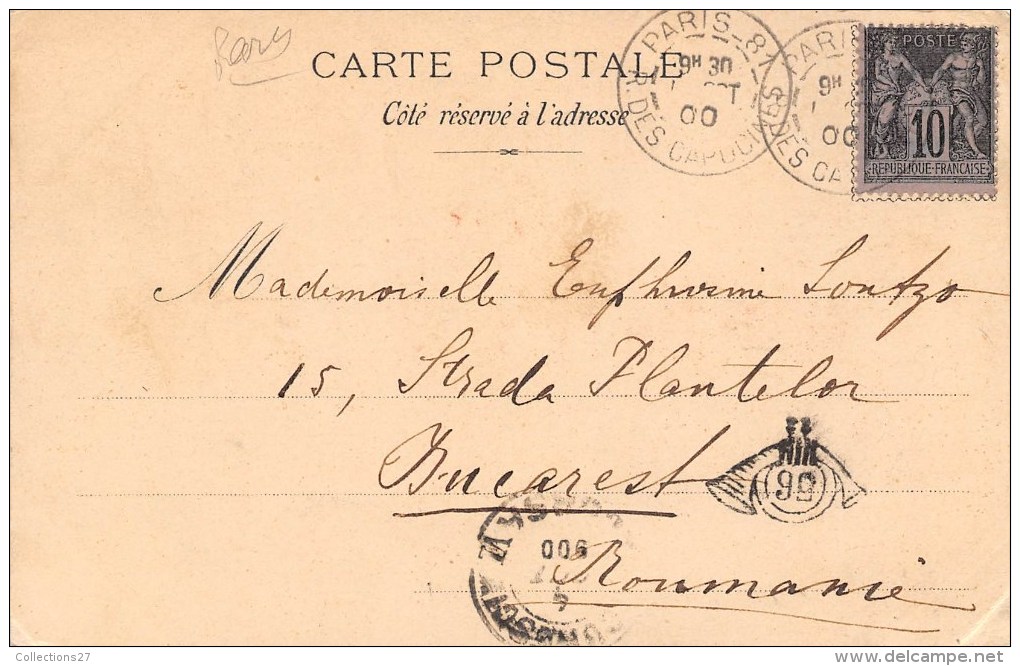 CARTE POSTALE
Côté réservé à l'adresse
PARIS_81
9H 30
00
R. DES CAPUCINES
PARI
9H
00
DES CA
POSTE
10
REPUBLIQUE-FRANCAISE
Mademoiselle Euphrosine Soutzo
15, Strada Plantelor
Bucarest
56
900
Roumanie
Collections27